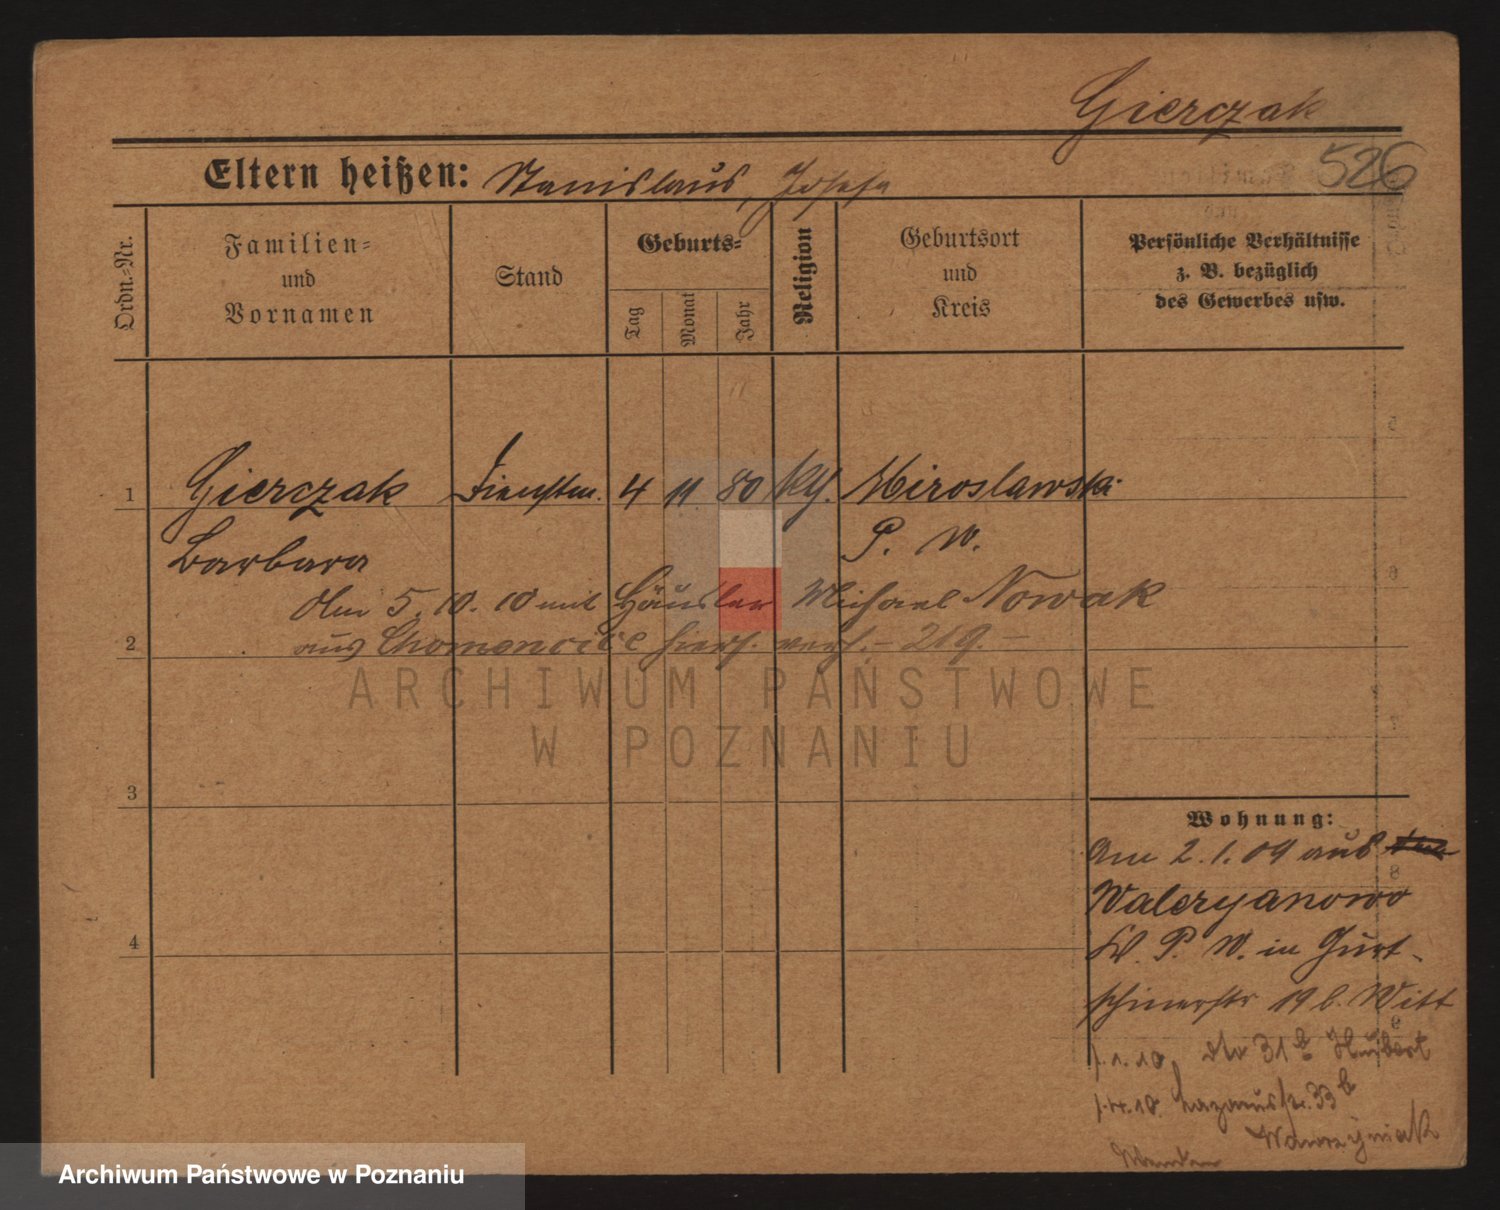 Gierczak
526
Eltern heißen: Stanislaus, Josefa
Ordn.-Nr.
Familien-
und
Vornamen
Stand
Geburts-
Tag
Monat
Jahr
Religion
Geburtsort
und
Kreis
Persönliche Verhältnisse
z. B. bezüglich
des Gewerbes usw.
1 Gierczak Dienstm. 4 11 80 kth. Miroslawski
Barbara P. W.
Am 5. 10. 10 mit Häusler Michael Nowak
2 aus Chomencice hier verh. - 219. -
ARCHIWUM PAŃSTWOWE
W POZNANIU
3
Wohnung:
Am 2.1.09 aus
Waleryanowo
Kr. P. W. in Gurt-
schinerstr 19 b. Witt
1.1.10 31 b
1.4.10. Lazarusstr. 33 b
Wawrzyniak
4
Archiwum Państwowe w Poznaniu